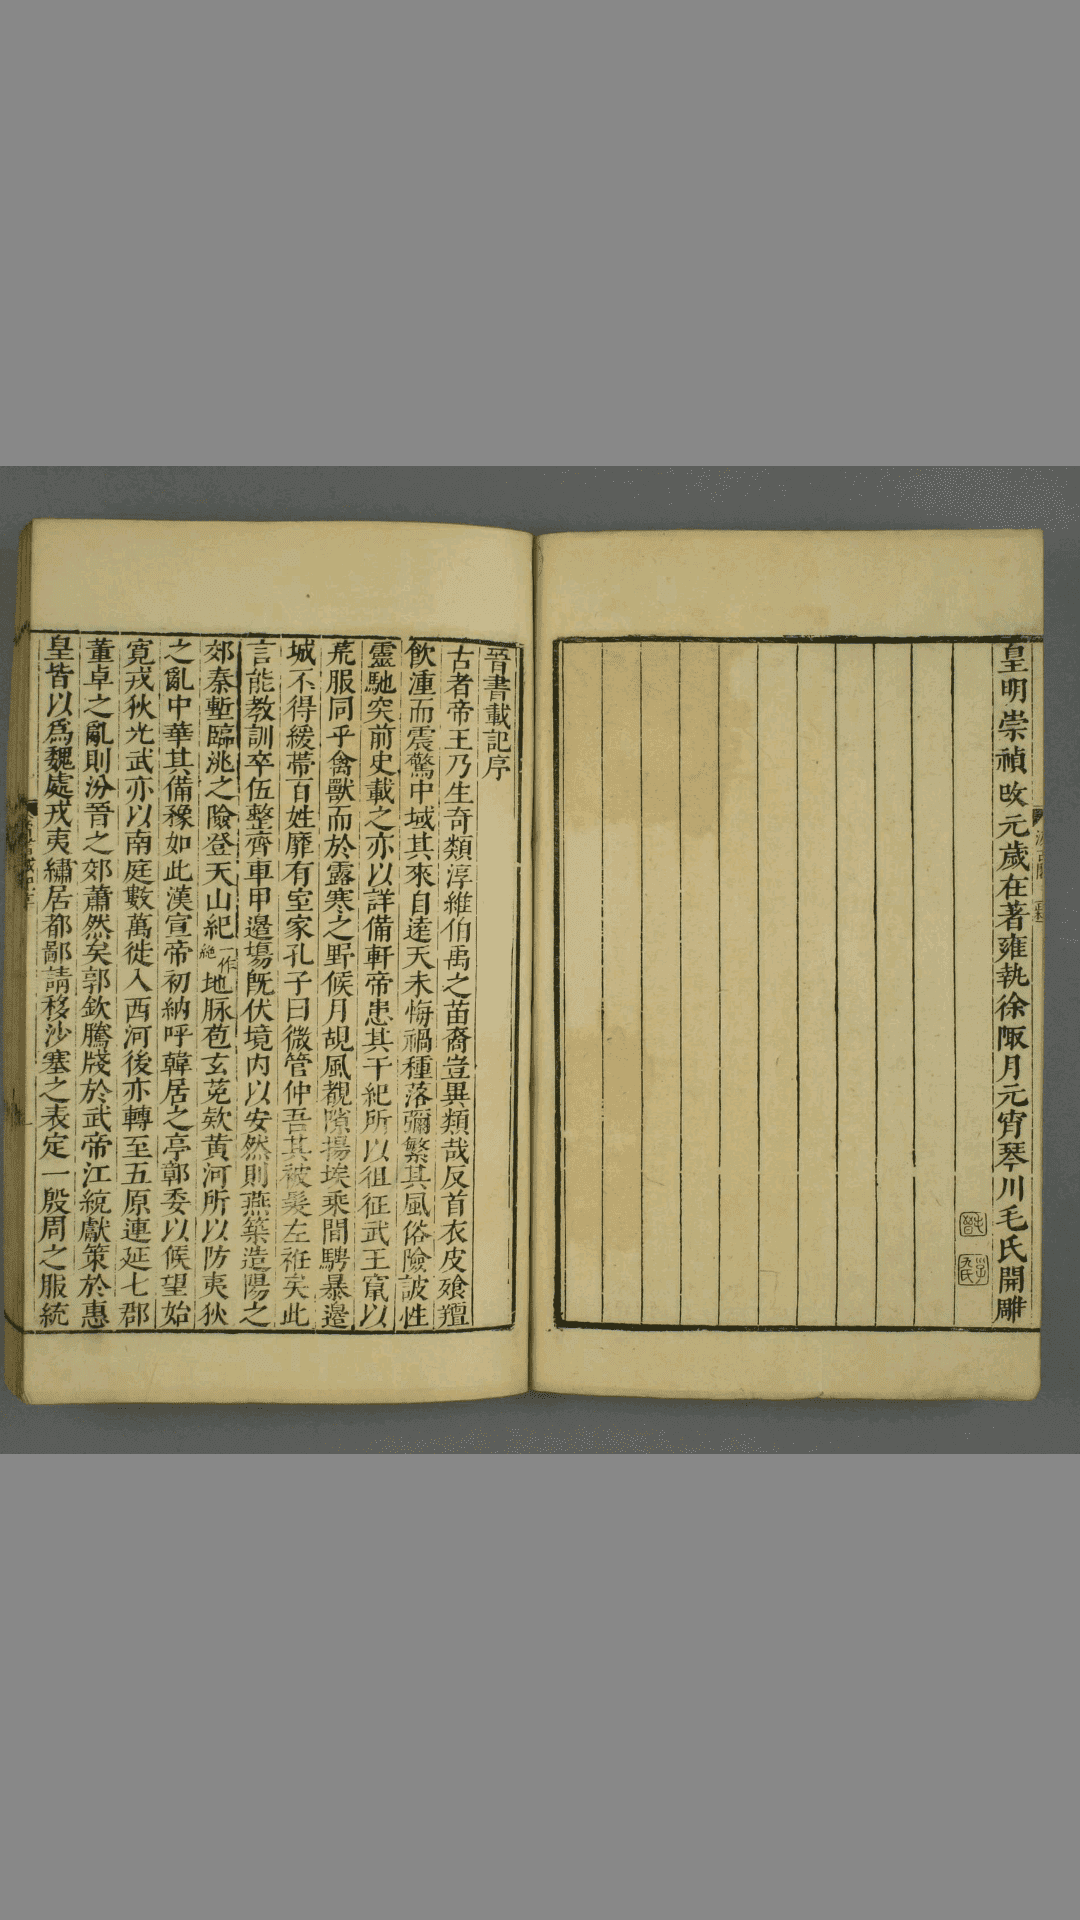 皇明崇禎改元歲在著雍執徐陬月元宵琴川毛氏開雕
晉書載記序
古者帝王乃生奇類淳維伯禹之苗裔豈異類哉反首衣皮飱羶
飲湩而震驚中域其來自遠天未悔禍種落彌繁其風俗險詖性
靈馳突前史載之亦以詳備軒帝患其干紀所以徂征武王竄以
荒服同乎禽獸而於露寒之野候月覘風覩隙揚埃乘間騁暴邊
城不得緩帶百姓靡有室家孔子曰微管仲吾其被髮左袵矣此
言能教訓卒伍整齊車甲邊塲既伏境内以安然則燕築造陽之
郊秦塹臨洮之險登天山紀一作絶地脉苞玄菟欸黄河所以防夷狄
之亂中華其備豫如此漢宣帝初納呼韓居之亭鄣委以候望始
寛戎狄光武亦以南庭數萬徙入西河後亦轉至五原連延七郡
董卓之亂則汾晉之郊蕭然矣郭欽騰牋於武帝江統獻策於惠
皇皆以爲魏處戎夷繡居都鄙請移沙塞之表定一殷周之服統